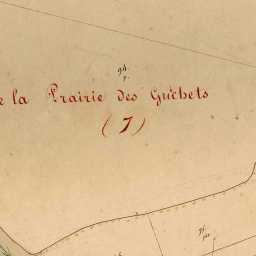 94.
P.
e la Prairie des Guchets
(7)